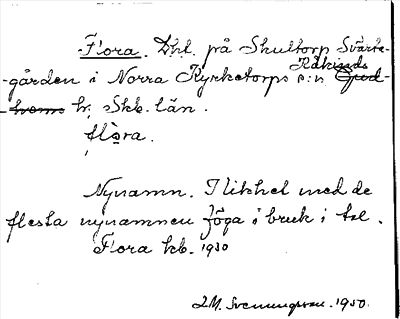 Flora. Dht. på Skultorp Svarte-
Kåkinds
-gården i Norra Kyrketorps s:n Gud-
-hems hr, Skb. län.
flòra.
Nynamn. I likhet med de
flesta nynamnen föga i bruk i tal.
Flora kb. 1930
J.M. Svenningsson. 1930.